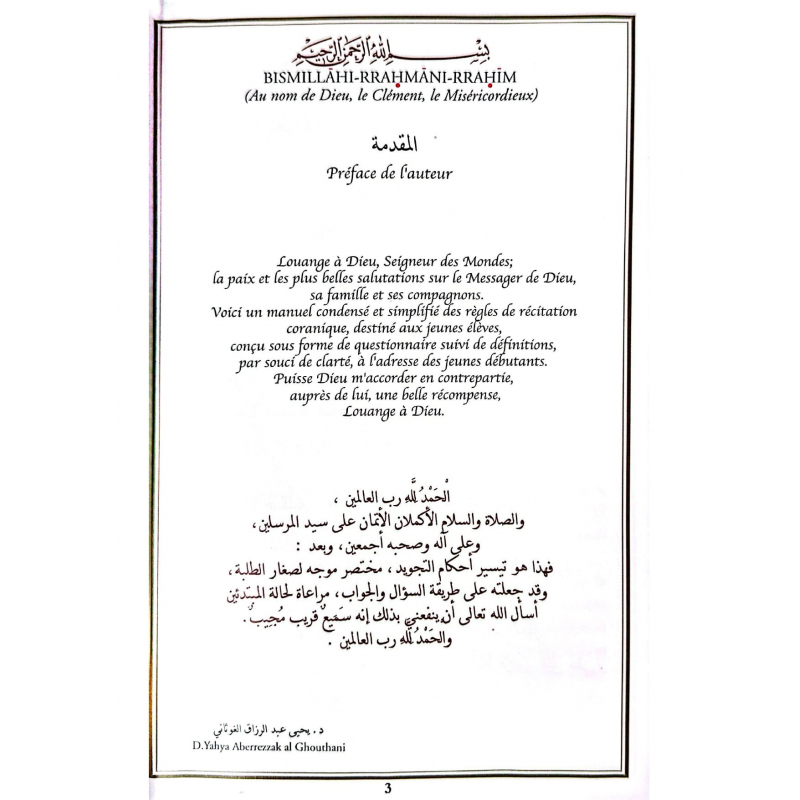 بِسْمِ اللهِ الرَّحْمَنِ الرَّحِيمِ
BISMILLĀHI-RRAḤMĀNI-RRAḤĪM
(Au nom de Dieu, le Clément, le Miséricordieux)
المقدمة
Préface de l'auteur
Louange à Dieu, Seigneur des Mondes;
la paix et les plus belles salutations sur le Messager de Dieu,
sa famille et ses compagnons.
Voici un manuel condensé et simplifié des règles de récitation
coranique, destiné aux jeunes élèves,
conçu sous forme de questionnaire suivi de définitions,
par souci de clarté, à l'adresse des jeunes débutants.
Puisse Dieu m'accorder en contrepartie,
auprès de lui, une belle récompense,
Louange à Dieu.
الْحَمْدُ لِلَّهِ رب العالمين ،
والصلاة والسلام الأكملان الأتمان على سيد المرسلين،
وعلى آله وصحبه أجمعين، وبعد :
فهذا هو تيسير أحكام التجويد ، مختصر موجه لصغار الطلبة ،
وقد جعلته على طريقة السؤال والجواب، مراعاة لحالة المبتدئين
أسأل الله تعالى أن ينفعني بذلك إنه سَمِيعٌ قريب مُجِيبٌ .
والْحَمْدُ لِلَّهِ رب العالمين .
د. يحيى عبد الرزاق الغوثاني
D.Yahya Aberrezzak al Ghouthani
3